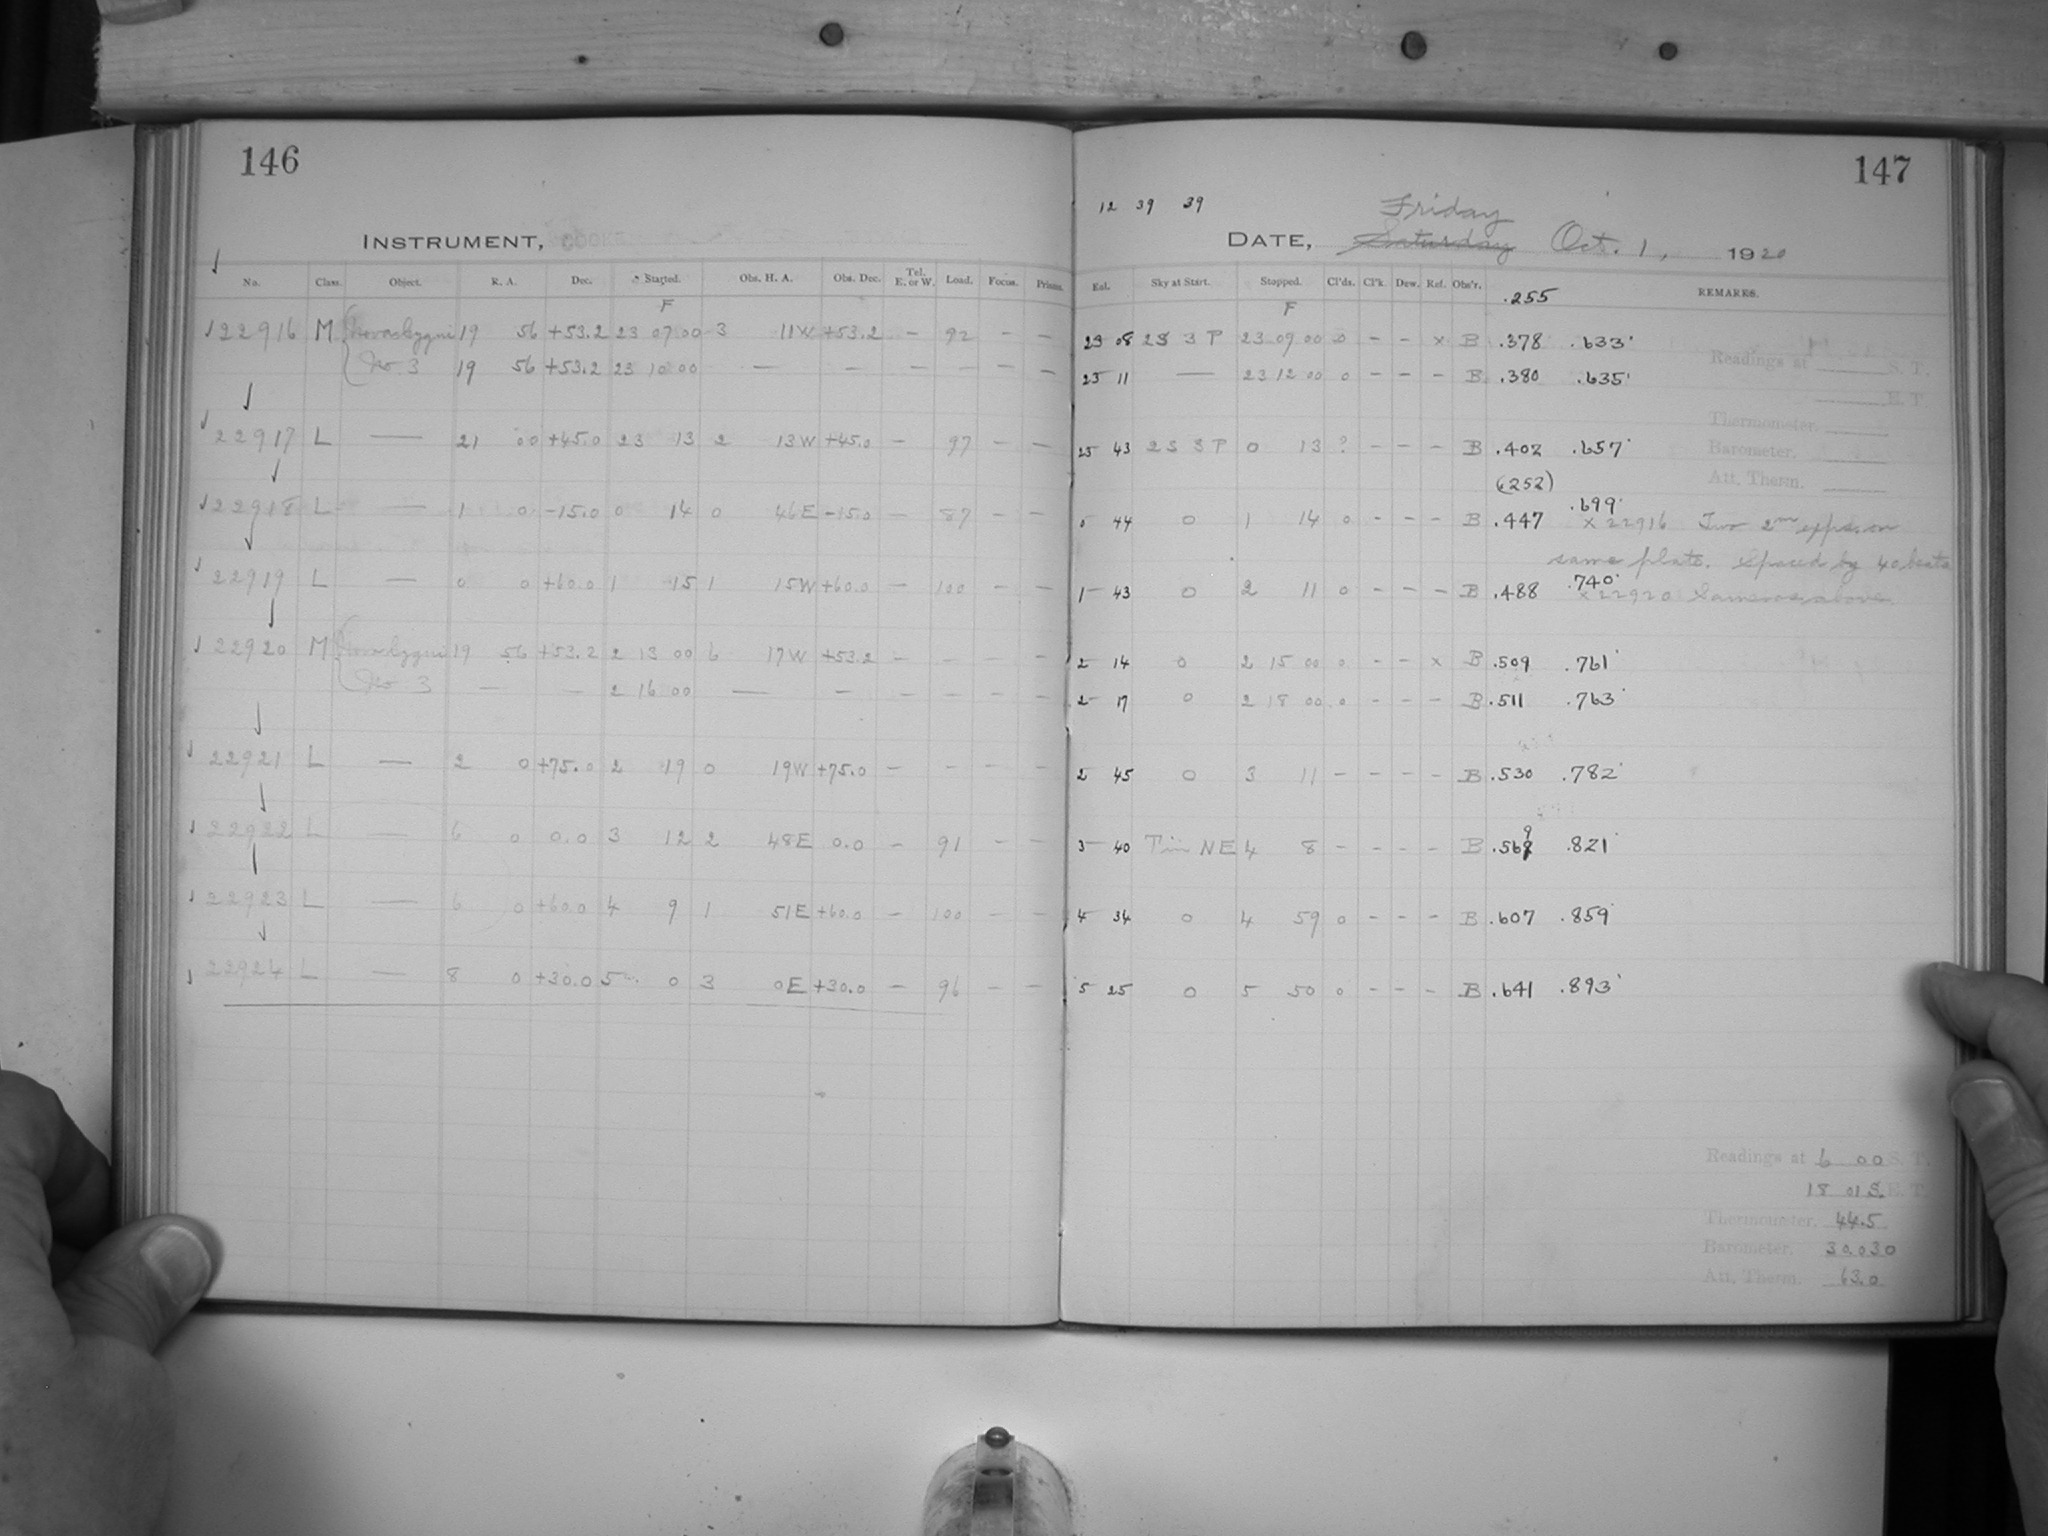 146
INSTRUMENT, COOKE
No. Class. Object. R. A. Dec. Started. Obs. H. A. Obs. Dec. Tel. E. or W. Load. Focus. Prisms.
F
22916 M Nova Cygni 19 56 +53.2 23 07 00 3 11W +53.2 — 92 — —
No. 3 19 56 +53.2 23 10 00 — — — — — —
22917 L — 21 00 +45.0 23 13 2 13W +45.0 — 97 — —
22918 L — 1 0 -15.0 0 14 0 46E -15.0 — 87 — —
22919 L — 0 0 +60.0 1 15 1 15W +60.0 — 100 — —
22920 M Nova Cygni 19 56 +53.2 2 13 00 6 17W +53.2 — — — —
No 3 — — 2 16 00 — — — — — —
22921 L — 2 0 +75.0 2 19 0 19W +75.0 — — — —
22922 L — 6 0 0.0 3 12 2 48E 0.0 — 91 — —
22923 L — 6 0 +60.0 4 9 1 51E +60.0 — 100 — —
22924 L — 8 0 +30.0 5 0 3 0E +30.0 — 96 — —
147
12 39 39
Friday
DATE, Saturday Oct. 1, 1920
Eql. Sky at Start. Stopped. Cl'ds. Cl'k. Dew. Ref. Obs'r. .255 REMARKS.
F
23 08 2S 3P 23 09 00 0 - - x B .378 .633
Readings at S. T.
23 11 — 23 12 00 0 - - - B .380 .635
E. T.
Thermometer.
23 43 2S 3P 0 13 ? - - - B .402 .657
Barometer.
(.252)
Att. Therm.
0 44 0 1 14 0 - - - B .447 .699 x 22916 Two 2m exps. on
same plate. Spaced by 40 beats
1 43 0 2 11 0 - - - B .488 .740 x 22920 Same as above
2 14 0 2 15 00 0 - - x B .509 .761
2 17 0 2 18 00 0 - - - B .511 .763
2 45 0 3 11 - - - - B .530 .782
3 40 NE 4 8 - - - - B .569 .821
4 34 0 4 59 0 - - - B .607 .859
5 25 0 5 50 0 - - - B .641 .893
Readings at 6 00 S. T.
18 01 S. E. T.
Thermometer. 44.5
Barometer. 30.030
Att. Therm. 63.0